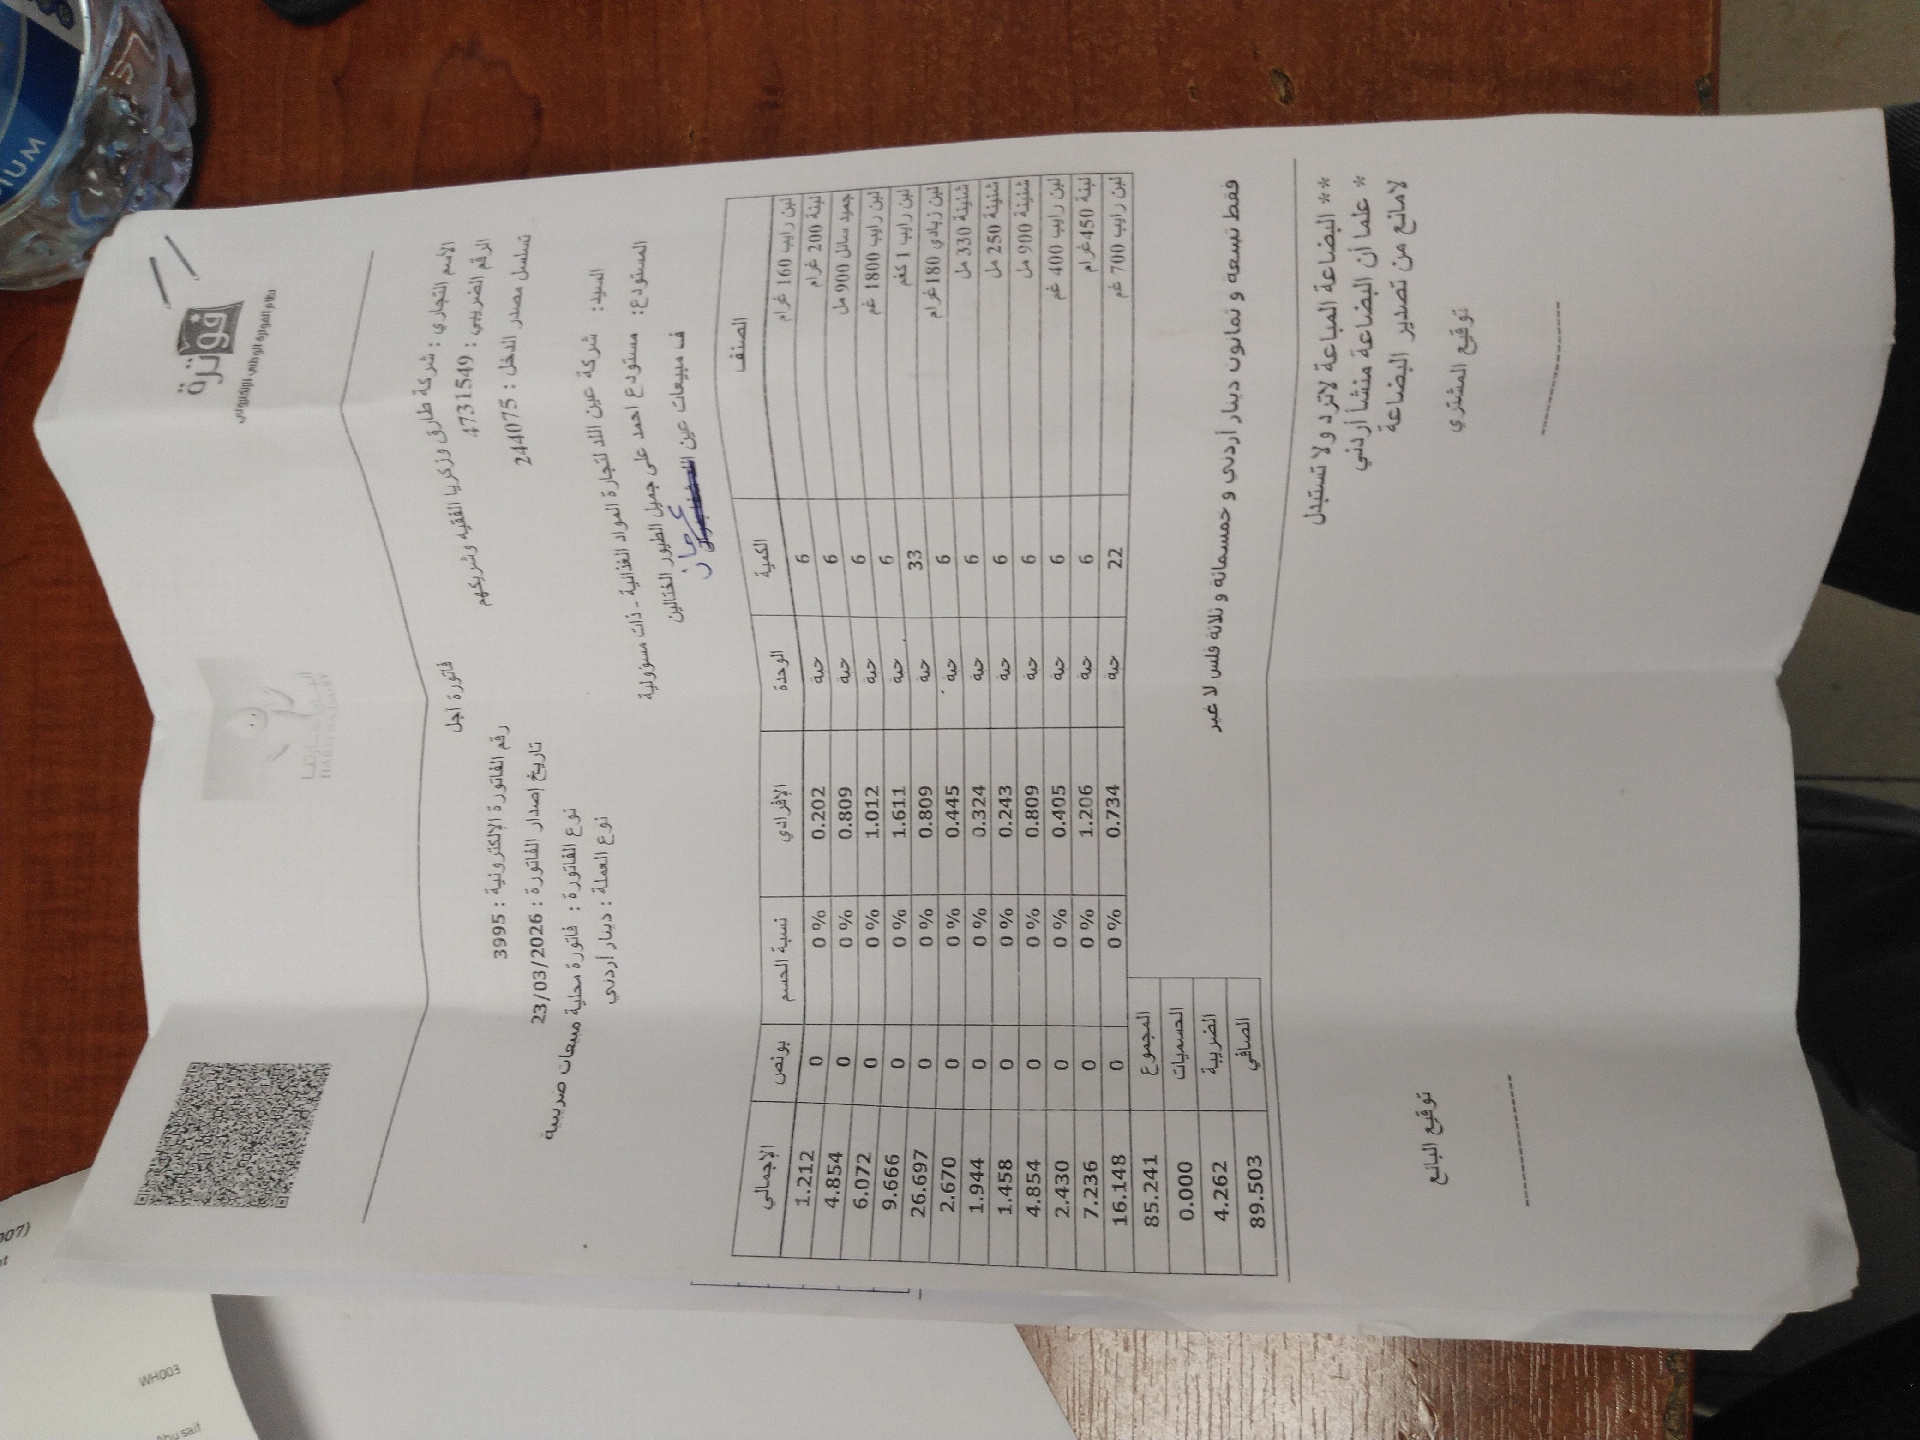 فوترة
نظام الفوترة الوطني الإلكتروني
فاتورة اجل
الاسم التجاري : شركة طارق وزكريا الفقيه وشريكهم
الرقم الضريبي : 4731549
تسلسل مصدر الدخل : 244075
رقم الفاتورة الإلكترونية : 3995
تاريخ إصدار الفاتورة : 23/03/2026
نوع الفاتورة : فاتورة محلية مبيعات ضريبية
نوع العملة : دينار أردني
السيد: شركة عين اللد لتجارة المواد الغذائية - ذات مسؤولية
المستودع: مستودع احمد علي جميل الطيور الختالين
ف مبيعات عين
الصنف الكمية الوحدة الإفرادي نسبة الحسم بونص الإجمالي
لبن رايب 160 غرام 6 حبة 0.202 0 % 0 1.212
لبنة 200 غرام 6 حبة 0.809 0 % 0 4.854
جميد سائل 900 مل 6 حبة 1.012 0 % 0 6.072
لبن رايب 1800 غم 6 حبة 1.611 0 % 0 9.666
لبن رايب 1 كغم 33 حبة 0.809 0 % 0 26.697
لبن زبادي 180 غرام 6 حبة 0.445 0 % 0 2.670
شنينة 330 مل 6 حبة 0.324 0 % 0 1.944
شنينة 250 مل 6 حبة 0.243 0 % 0 1.458
شنينة 900 مل 6 حبة 0.809 0 % 0 4.854
لبن رايب 400 غم 6 حبة 0.405 0 % 0 2.430
لبنة 450 غرام 6 حبة 1.206 0 % 0 7.236
لبن رايب 700 غم 22 حبة 0.734 0 % 0 16.148
المجموع 85.241
الحسميات 0.000
الضريبة 4.262
الصافي 89.503
فقط تسعة و ثمانون دينار اردني و خمسمائة و ثلاثة فلس لا غير
** البضاعة المباعة لاترد ولا تستبدل
* علما أن البضاعة منشأ أردني
لامانع من تصدير البضاعة
توقيع المشتري
توقيع البائع
WH003